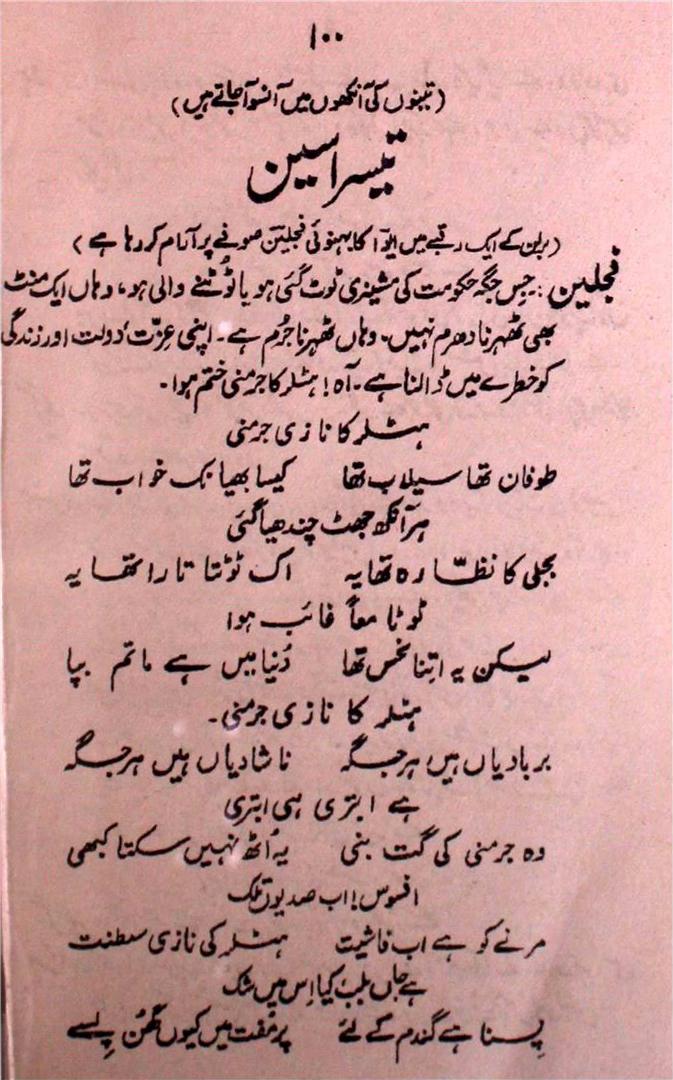 ۱۰۰
(تینوں کی آنکھوں میں آنسو آ جاتے ہیں)
تیسرا سین
(برلن کے ایک رقبے میں ایوا کا بہنوئی فجلین صوفے پر آرام کر رہا ہے)
فجلین :۔ جس جگہ حکومت کی مشینری ٹوٹ گئی ہو یا ٹوٹنے والی ہو، وہاں ایک منٹ
بھی ٹھہرنا دھرم نہیں۔ وہاں ٹھہرنا جُرم ہے۔ اپنی عزّت دولت اور زندگی
کو خطرے میں ڈالنا ہے۔ آہ! ہٹلر کا جرمنی ختم ہوا۔
ہٹلر کا نازی جرمنی
طوفان تھا سیلاب تھا کیسا بھیانک خواب تھا
ہر آنکھ جھٹ چندھیا گئی
بجلی کا نظّارہ تھا یہ اک ٹوٹتا تارا تھا یہ
ٹوٹا معاً غائب ہوا
لیکن یہ اِتنا نحس تھا دُنیا میں ہے ماتم بپا
ہٹلر کا نازی جرمنی۔
بربادیاں ہیں ہر جگہ ناشادیاں ہیں ہر جگہ
ہے ابتری ہی ابتری
وہ جرمنی کی گت بنی یہ اُٹھ نہیں سکتا کبھی
افسوس! اب صدیوں تلک
مرنے کو ہے اب فاشیت ہٹلر کی نازی سلطنت
ہے جاں بلب کیا اِس میں شک
پِسنا ہے گندم کے لئے پر مُفت میں کیوں گھُن پِسے